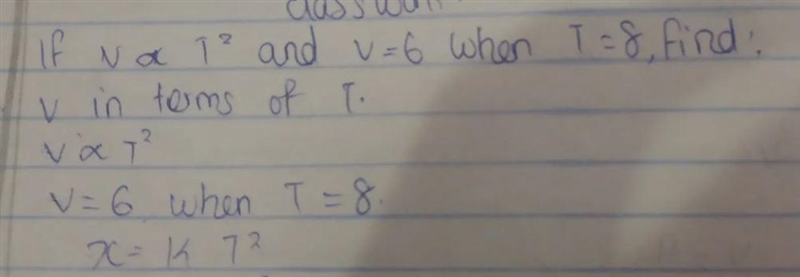 If v ∝ T² and v=6 when T=8, find:
v in terms of T.
v ∝ T²
v=6 when T=8.
x= K T²